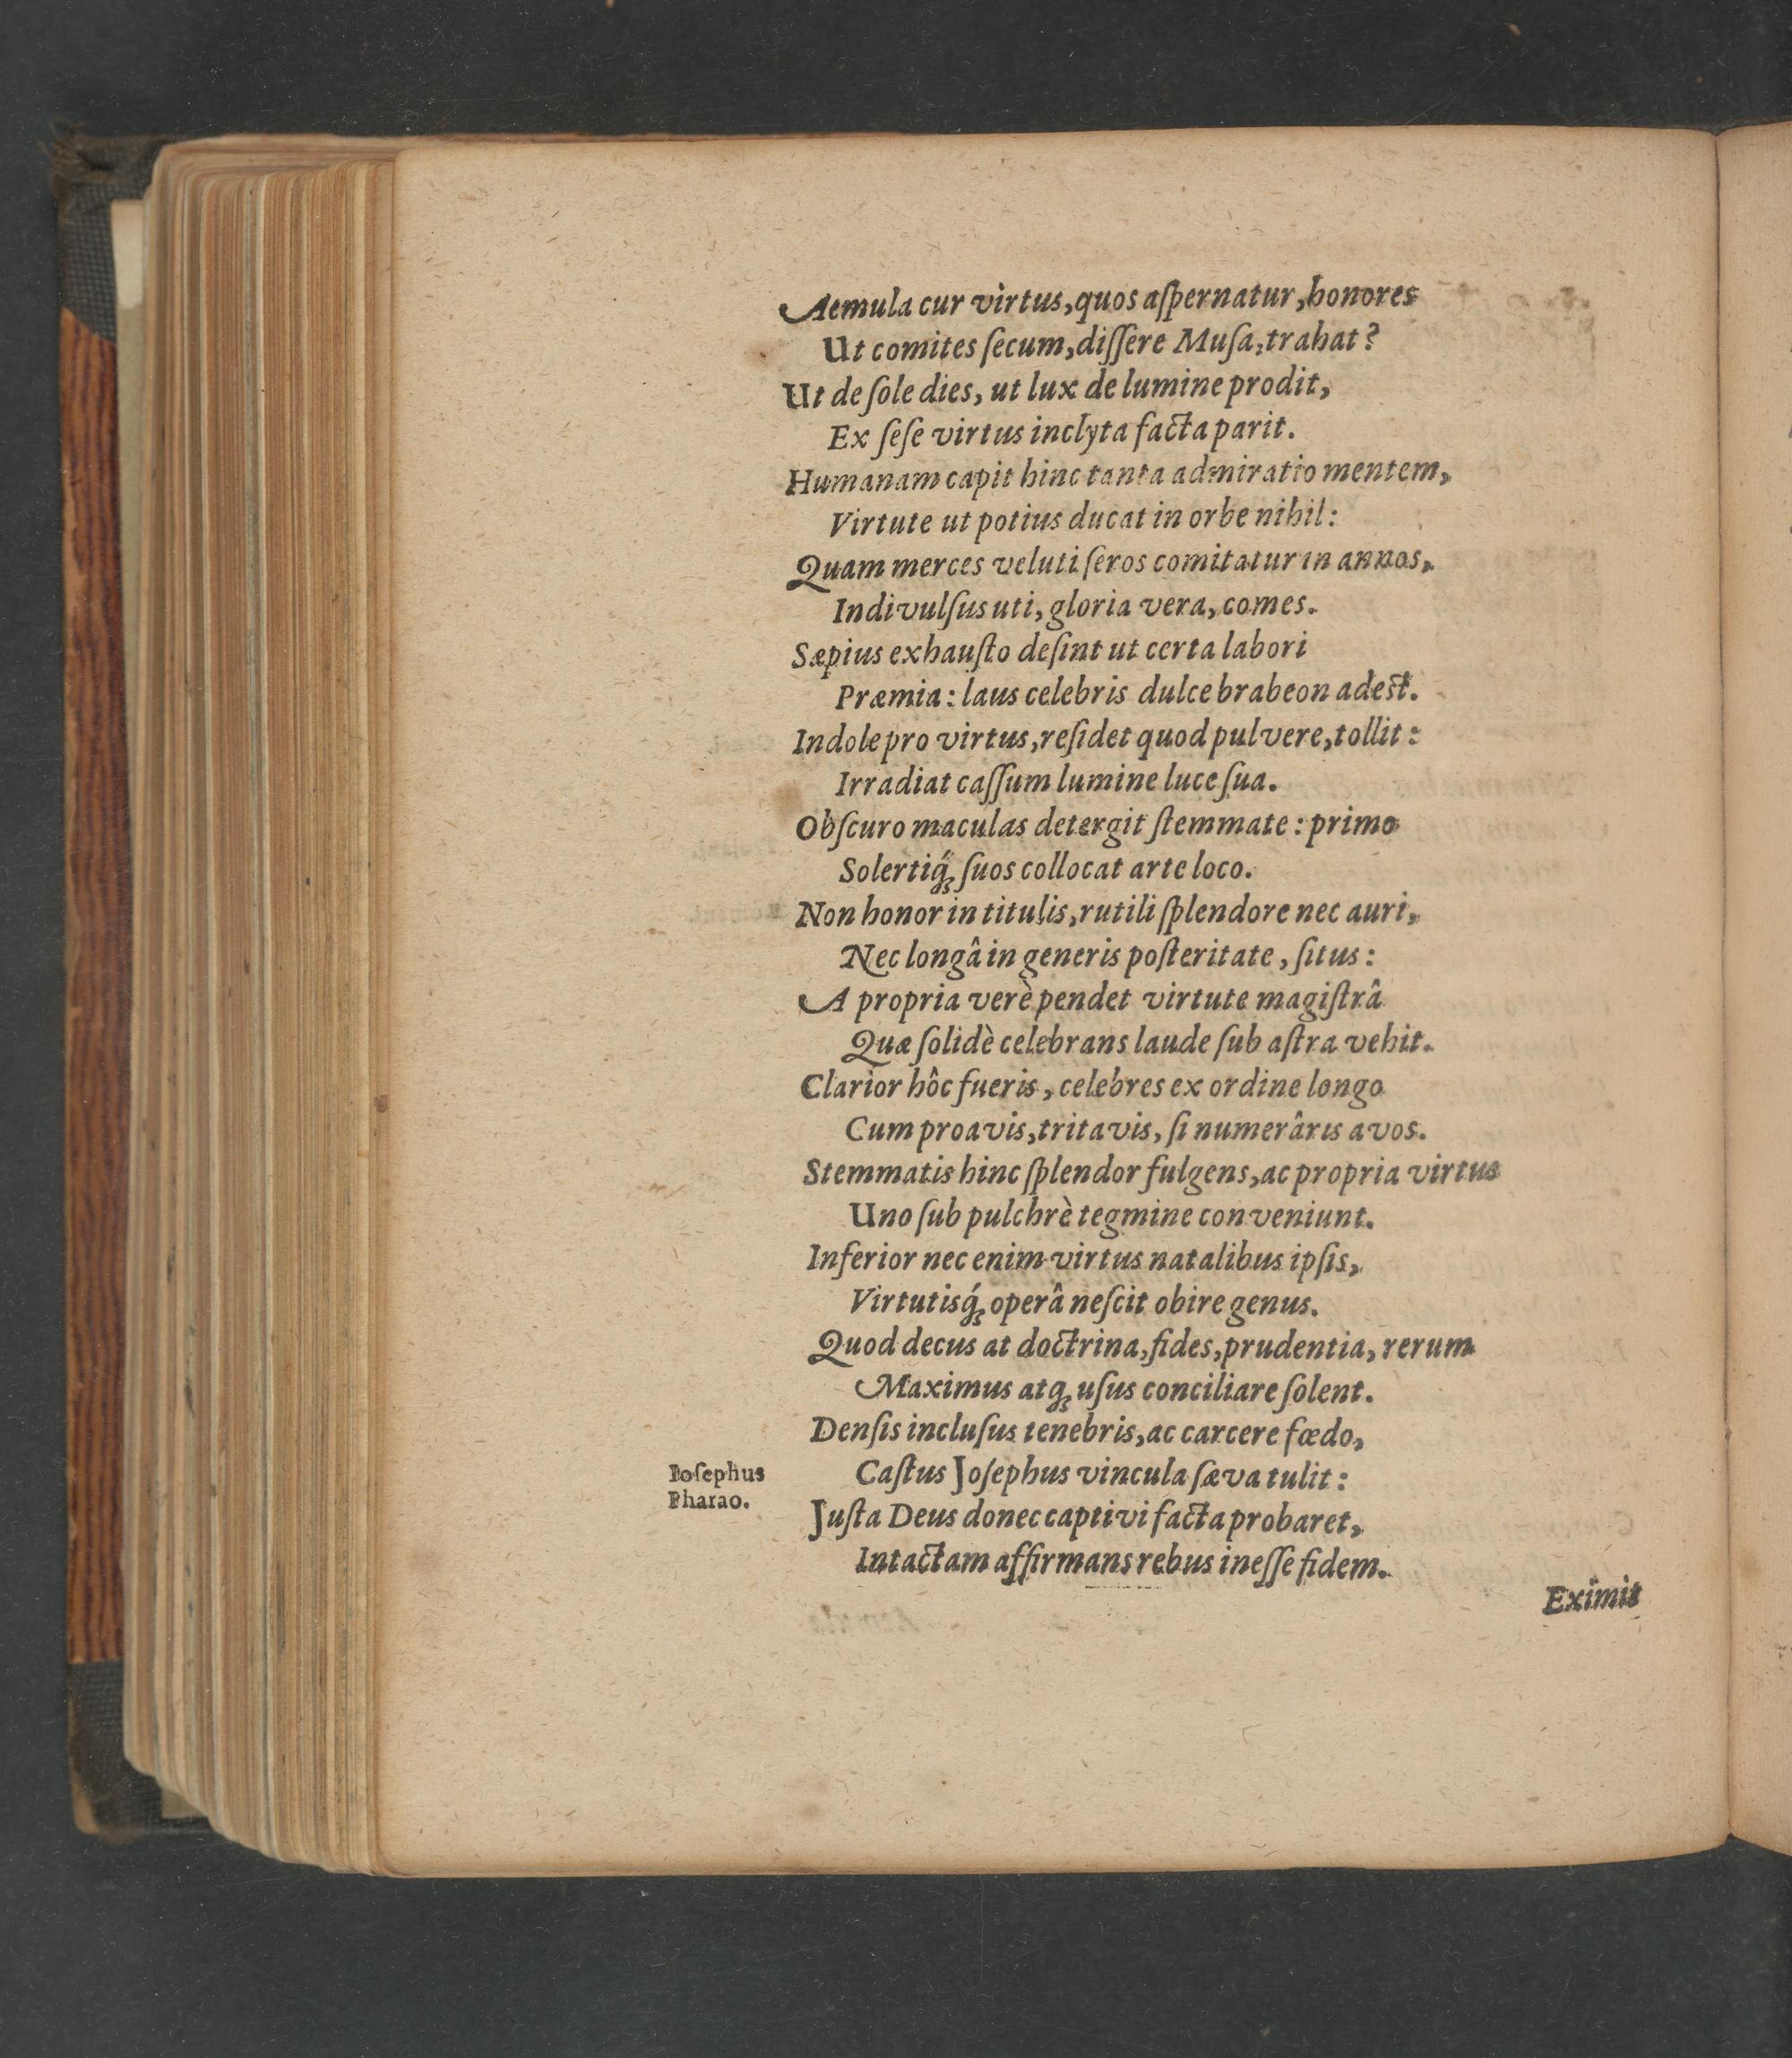 Aemula cur virtus, quos aſpernatur, honores
Ut comites ſecum, diſſere Muſa, trahat?
Ut de ſole dies, ut lux de lumine prodit,
Ex ſeſe virtus inclyta facta parit.
Humanam capit hinc tanta admiratio mentem,
Virtute ut potius ducat in orbe nihil:
Quam merces veluti ſeros comitatur in annos,
Indivulſus uti, gloria vera, comes.
Sæpius exhauſto deſint ut certa labori
Præmia: laus celebris dulce brabeon adest.
Indole pro virtus, reſidet quod pulvere, tollit:
Irradiat caſſum lumine luce ſua.
Obſcuro maculas detergit ſtemmate: primo
Solertiq́ꝫ ſuos collocat arte loco.
Non honor in titulis, rutili ſplendore nec auri,
Nec longâ in generis poſteritate, ſitus:
A propria verè pendet virtute magiſtrâ
Quæ ſolidè celebrans laude ſub aſtra vehit.
Clarior hôc fueris, celebres ex ordine longo
Cum proavis, tritavis, ſi numerâris avos.
Stemmatis hinc ſplendor fulgens, ac propria virtus
Uno ſub pulchrè tegmine conveniunt.
Inferior nec enim virtus natalibus ipſis,
Virtutisq́ꝫ operâ neſcit obire genus.
Quod decus at doctrina, fides, prudentia, rerum
Maximus atqꝫ uſus conciliare ſolent.
Denſis incluſus tenebris, ac carcere fœdo,
Caſtus Joſephus vincula ſæva tulit:
Ioſephus
Pharao.
Juſta Deus donec captivi facta probaret,
Intactam affirmans rebus ineſſe fidem.
Eximit